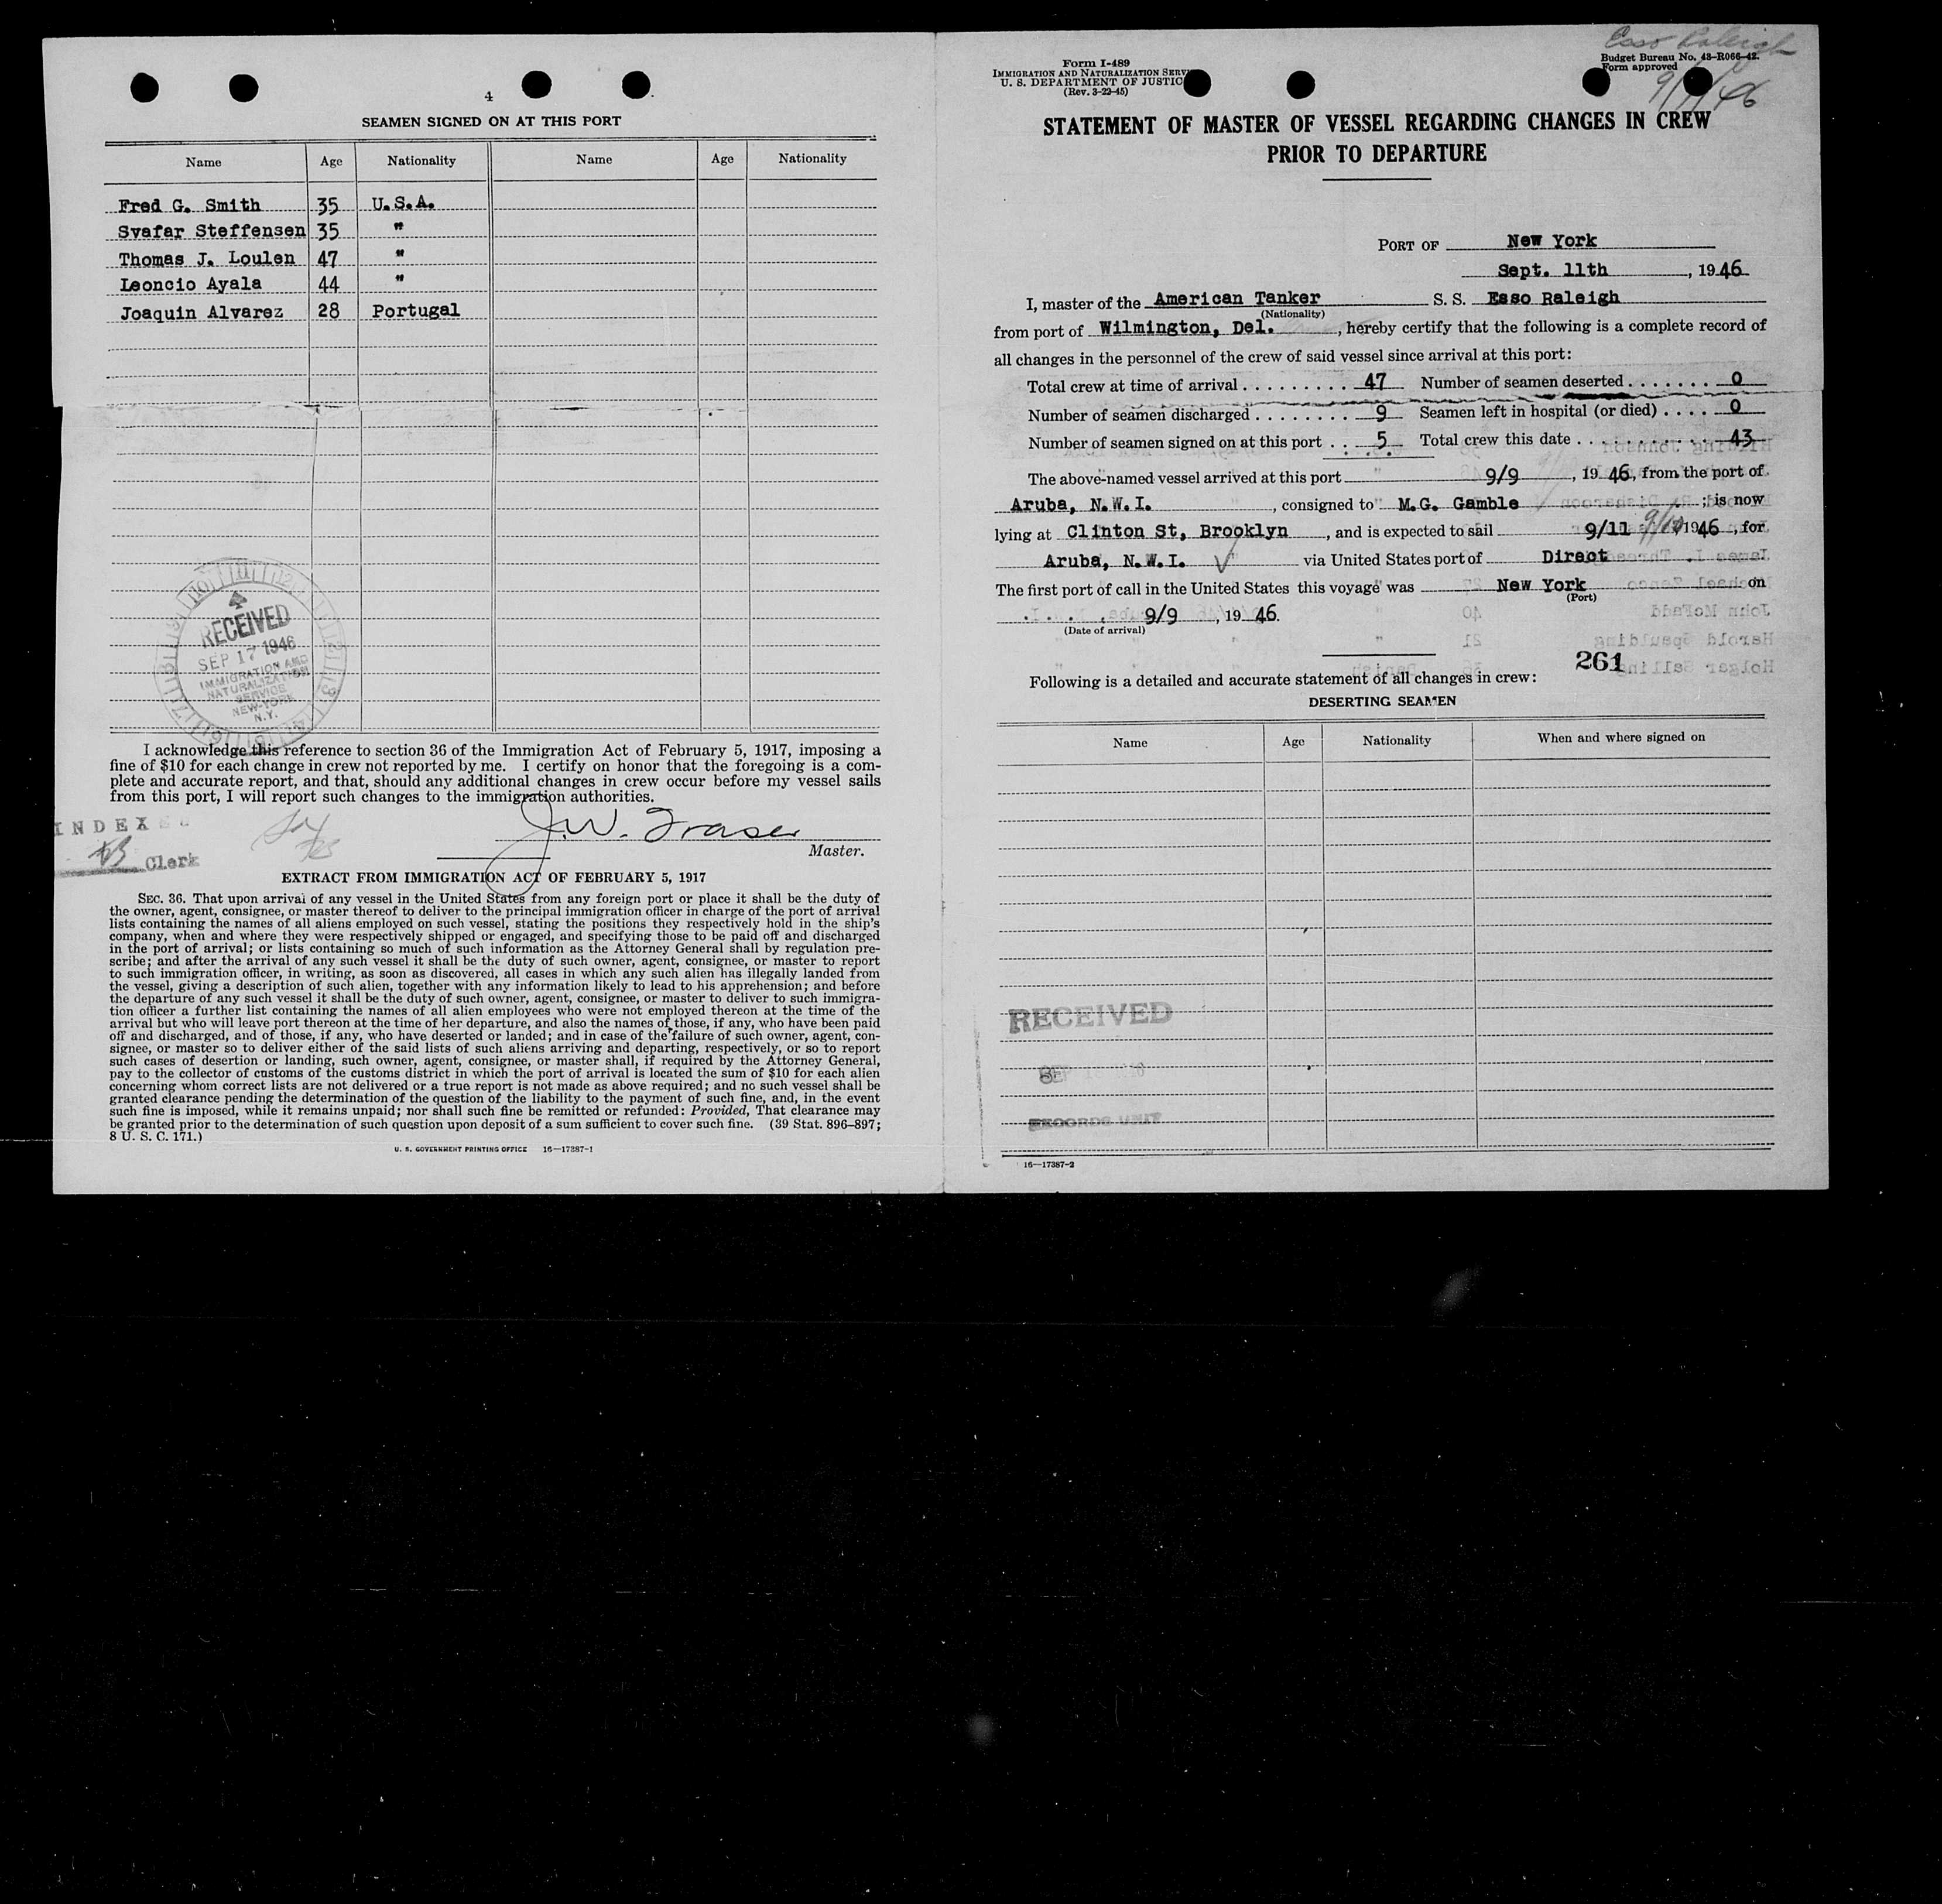 4
SEAMEN SIGNED ON AT THIS PORT
Name Age Nationality Name Age Nationality
Fred G. Smith 35 U.S.A.
Svafar Steffensen 35 "
Thomas J. Loulen 47 "
Leoncio Ayala 44 "
Joaquin Alvarez 28 Portugal
RECEIVED
SEP 17 1946
IMMIGRATION AND
NATURALIZATION
SERVICE
NEW-YORK
N.Y.
I acknowledge this reference to section 36 of the Immigration Act of February 5, 1917, imposing a
fine of $10 for each change in crew not reported by me. I certify on honor that the foregoing is a com-
plete and accurate report, and that, should any additional changes in crew occur before my vessel sails
from this port, I will report such changes to the immigration authorities.
INDEX
Clerk
J.W. Fraser
Master.
EXTRACT FROM IMMIGRATION ACT OF FEBRUARY 5, 1917
SEC. 36. That upon arrival of any vessel in the United States from any foreign port or place it shall be the duty of
the owner, agent, consignee, or master thereof to deliver to the principal immigration officer in charge of the port of arrival
lists containing the names of all aliens employed on such vessel, stating the positions they respectively hold in the ship's
company, when and where they were respectively shipped or engaged, and specifying those to be paid off and discharged
in the port of arrival; or lists containing so much of such information as the Attorney General shall by regulation pre-
scribe; and after the arrival of any such vessel it shall be the duty of such owner, agent, consignee, or master to report
to such immigration officer, in writing, as soon as discovered, all cases in which any such alien has illegally landed from
the vessel, giving a description of such alien, together with any information likely to lead to his apprehension; and before
the departure of any such vessel it shall be the duty of such owner, agent, consignee, or master to deliver to such immigra-
tion officer a further list containing the names of all alien employees who were not employed thereon at the time of the
arrival but who will leave port thereon at the time of her departure, and also the names of those, if any, who have been paid
off and discharged, and of those, if any, who have deserted or landed; and in case of the failure of such owner, agent, con-
signee, or master so to deliver either of the said lists of such aliens arriving and departing, respectively, or so to report
such cases of desertion or landing, such owner, agent, consignee, or master shall, if required by the Attorney General,
pay to the collector of customs of the customs district in which the port of arrival is located the sum of $10 for each alien
concerning whom correct lists are not delivered or a true report is not made as above required; and no such vessel shall be
granted clearance pending the determination of the question of the liability to the payment of such fine, and, in the event
such fine is imposed, while it remains unpaid; nor shall such fine be remitted or refunded: Provided, That clearance may
be granted prior to the determination of such question upon deposit of a sum sufficient to cover such fine. (39 Stat. 896–897;
8 U. S. C. 171.)
U. S. GOVERNMENT PRINTING OFFICE 16—17387-1
Esso Raleigh
Form I-489
IMMIGRATION AND NATURALIZATION SERV
U. S. DEPARTMENT OF JUSTIC
(Rev. 3-22-45)
Budget Bureau No. 43-R066-42.
Form approved
STATEMENT OF MASTER OF VESSEL REGARDING CHANGES IN CREW
PRIOR TO DEPARTURE
PORT OF New York
Sept. 11th, 1946
I, master of the American Tanker S. S. Esso Raleigh
(Nationality)
from port of Wilmington, Del., hereby certify that the following is a complete record of
all changes in the personnel of the crew of said vessel since arrival at this port:
Total crew at time of arrival . . . . . . . . . . 47 Number of seamen deserted . . . . . . . 0
Number of seamen discharged . . . . . . . . 9 Seamen left in hospital (or died) . . . . 0
Number of seamen signed on at this port . . 5 Total crew this date . . . . . . . . . . . 43
The above-named vessel arrived at this port 9/9, 19 46, from the port of
Aruba, N.W.I., consigned to M.G. Gamble; is now
lying at Clinton St, Brooklyn, and is expected to sail 9/11 1946, for
Aruba, N.W.I. via United States port of Direct
The first port of call in the United States this voyage was New York on
(Port)
9/9, 19 46.
(Date of arrival)
261
Following is a detailed and accurate statement of all changes in crew:
DESERTING SEAMEN
Name Age Nationality When and where signed on
RECEIVED
SEP
RECORDS UNIT
16—17387-2